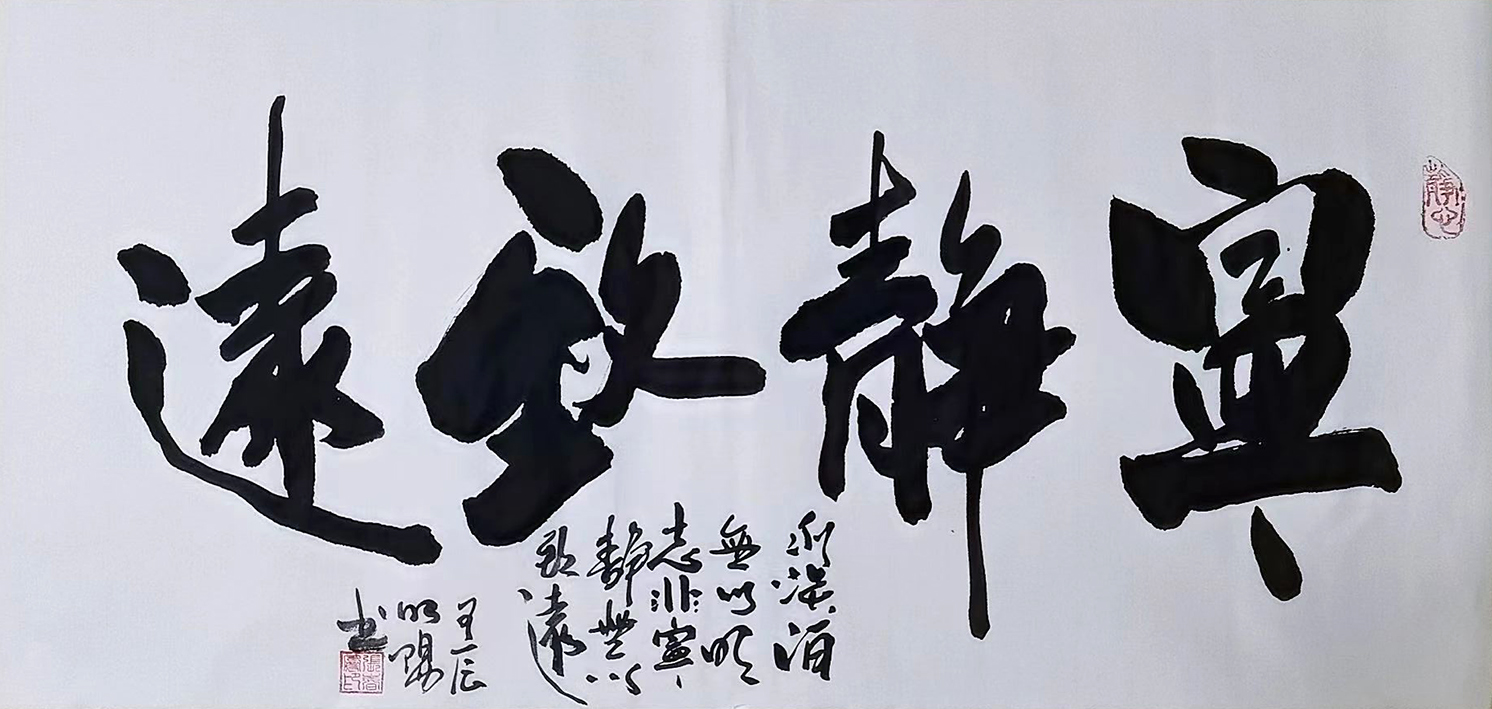 寧靜致遠
非淡泊
無以明
志非寧
靜無以
致遠
壬辰
明陽
书